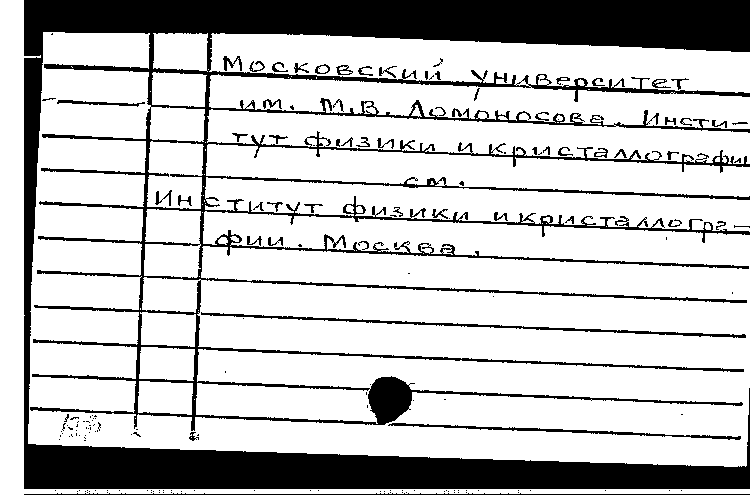 Московский университет
им. М.В. Ломоносова. Инсти-
тут физики и кристаллографии
см.
Институт физики и кристаллогра-
фии. Москва.